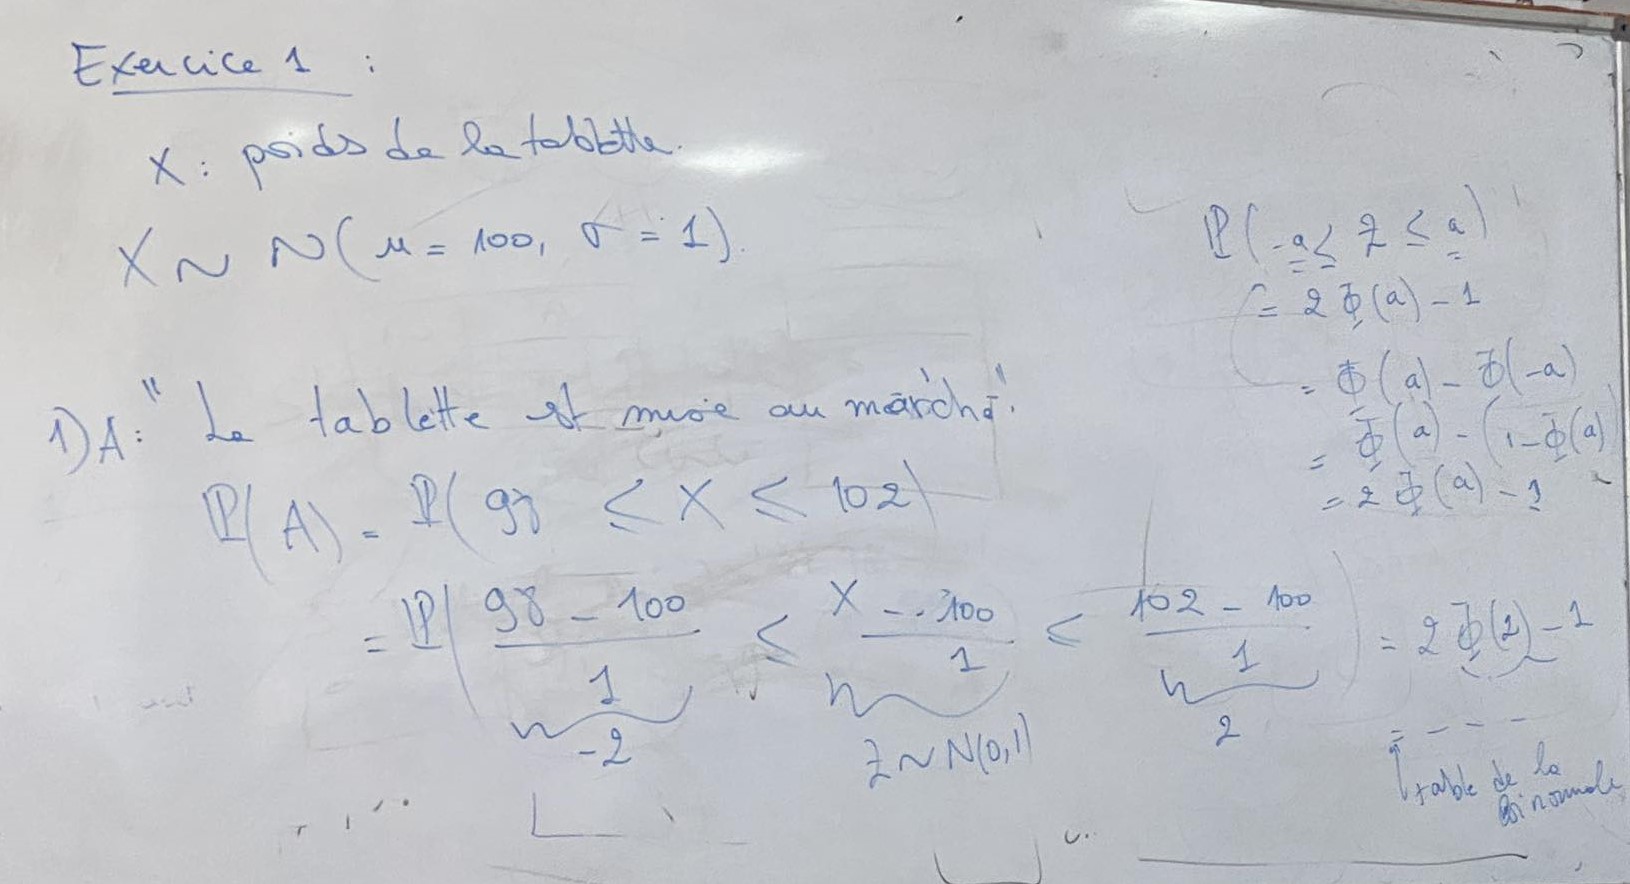 Exercice 1 :
X : poids de la tablette.
X ~ N(μ = 100, σ = 1).
1) A : "La tablette est mise au marché".
P(A) = P(98 ≤ X ≤ 102)
= P( (98 - 100)/1 ≤ (X - 100)/1 ≤ (102 - 100)/1 ) = 2Φ(2) - 1
-2 Z ~ N(0,1) 2
= - - - -
table de la
loi normale
P(-a ≤ Z ≤ a)
= 2Φ(a) - 1
= Φ(a) - Φ(-a)
= Φ(a) - (1 - Φ(a)
= 2Φ(a) - 1